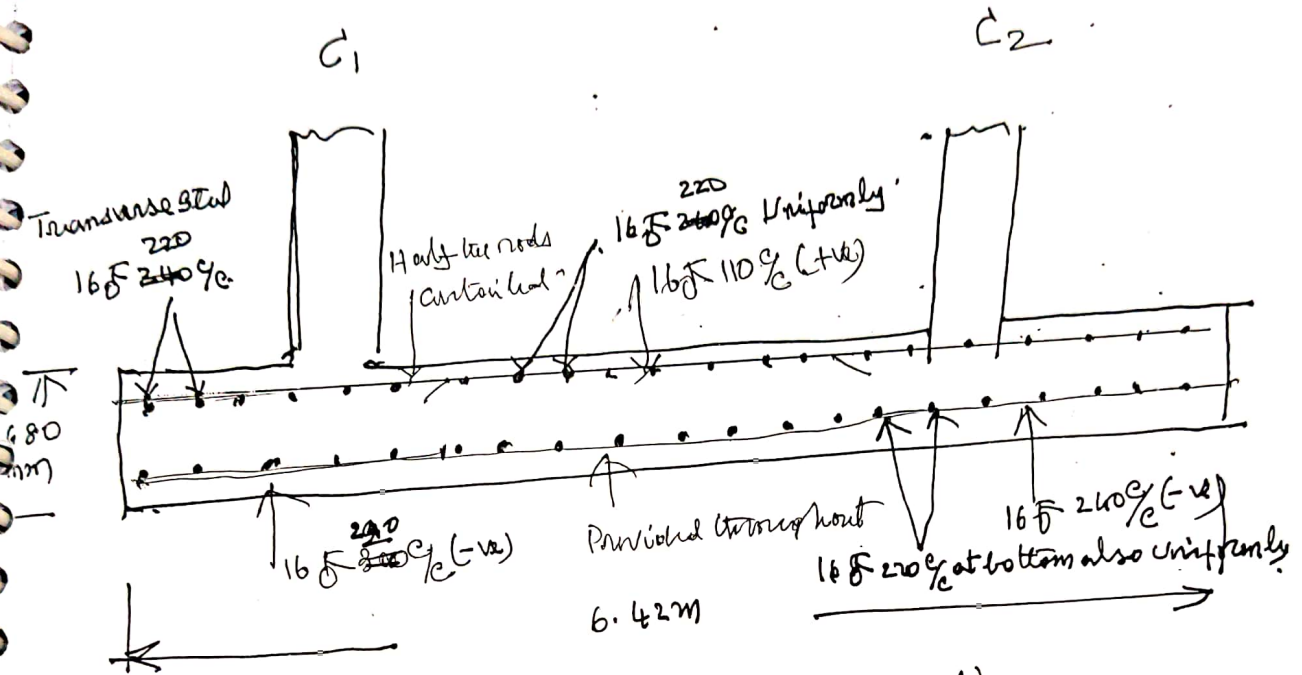 C1
C2
Transverse Steel
220
16φ c/c
Half the rods
curtailed
220
16φ c/c Uniformly
16φ 110 c/c (+ve)
680
mm
16φ c/c (-ve)
Provided throughout
16φ 240 c/c (-ve)
16φ 220 c/c at bottom also uniformly
6.42m